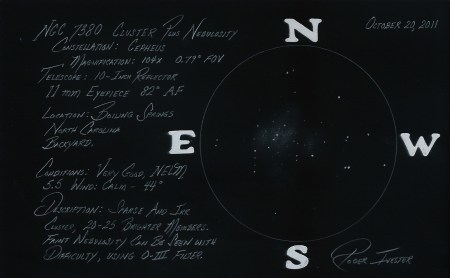 NGC 7380 Cluster Plus Nebulosity
Constellation: Cepheus
Magnification: 104x 0.79° FOV
Telescope: 10-Inch Reflector
11 mm Eyepiece 82° AF
Location: Boiling Springs
North Carolina
Backyard.
Conditions: Very Good, NELM
5.5 Wind: Calm - 44°
Description: Sparse And
Cluster, 20-25 Brighter Members.
Faint Nebulosity Can Be Seen With
Difficulty, using O-III Filter.
October 20, 2011
N
E
W
S
Roger Ivester